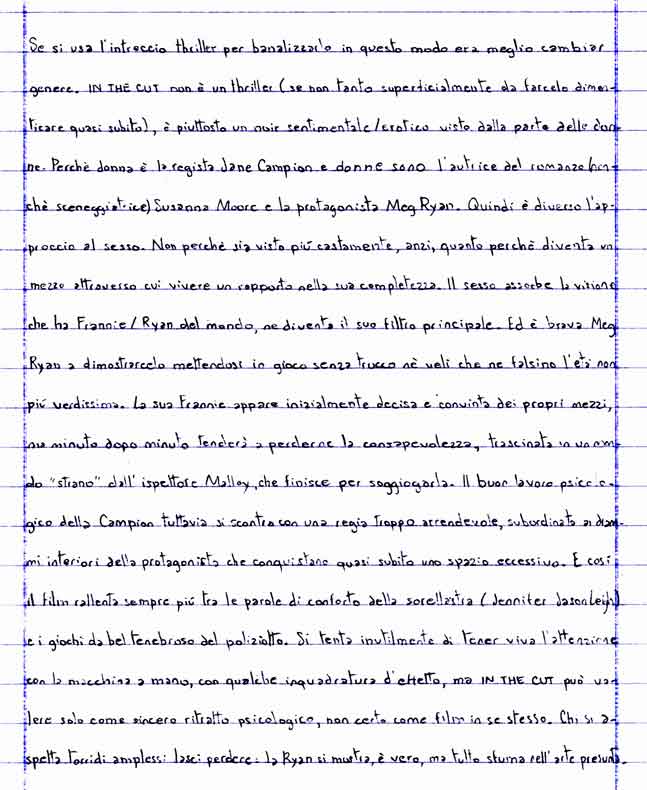 Se si usa l'intreccio thriller per banalizzarlo in questo modo era meglio cambiar
genere. IN THE CUT non è un thriller (se non tanto superficialmente da farcelo dimen-
ticare quasi subito), è piuttosto un noir sentimentale/erotico visto dalla parte delle don-
ne. Perchè donna è la regista Jane Campion e donne sono l'autrice del romanzo (non-
chè sceneggiatrice) Susanna Moore e la protagonista Meg Ryan. Quindi è diverso l'ap-
proccio al sesso. Non perchè sia visto più castamente, anzi, quanto perchè diventa un
mezzo attraverso cui vivere un rapporto nella sua completezza. Il sesso assorbe la visione
che ha Frannie/Ryan del mondo, ne diventa il suo filtro principale. Ed è brava Meg
Ryan a dimostrarcelo mettendosi in gioco senza trucco nè veli che ne falsino l'età non
più verdissima. La sua Frannie appare inizialmente decisa e convinta dei propri mezzi,
ma minuto dopo minuto tenderà a perderne la consapevolezza, trascinata in un mon-
do "strano" dall'ispettore Malloy, che finisce per soggiogarla. Il buon lavoro psicolo-
gico della Campion tuttavia si scontra con una regia troppo arrendevole, subordinata ai dram-
mi interiori della protagonista che conquistano quasi subito uno spazio eccessivo. E così
il film rallenta sempre più tra le parole di conforto della sorellastra (Jennifer Jason Leigh)
e i giochi da bel tenebroso del poliziotto. Si tenta inutilmente di tener viva l'attenzione
con la macchina a mano, con qualche inquadratura d'effetto, ma IN THE CUT può va-
lere solo come sincero ritratto psicologico, non certo come film in se stesso. Chi si a-
spetta torridi amplessi lasci perdere: la Ryan si mostra, è vero, ma tutto sfuma nell'arte presunta.